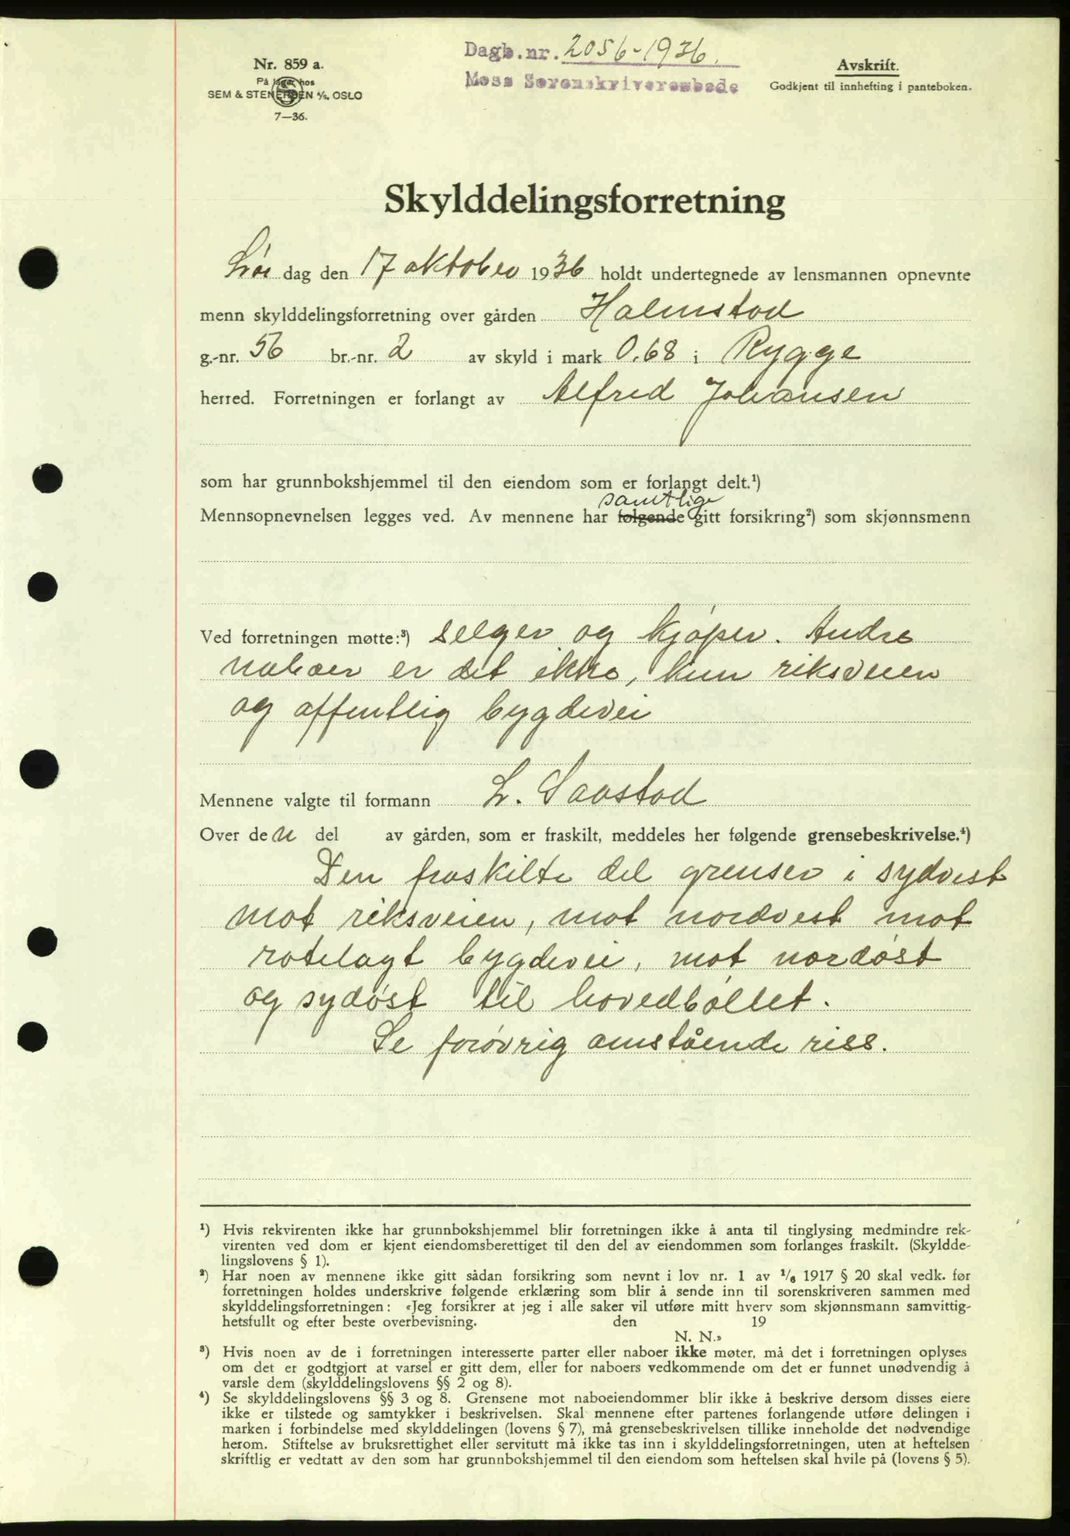 Nr. 859 a.
På lager hos
SEM & STENERSEN A/S. OSLO
7—36.
Dagb.nr. 2056-1936.
Moss Sorenskriverembede
Avskrift.
Godkjent til innhefting i panteboken.
Skylddelingsforretning
Lør dag den 17 oktober 1936 holdt undertegnede av lensmannen opnevnte
menn skylddelingsforretning over gården Halmstad
g.-nr. 56 br.-nr. 2 av skyld i mark 0,68 i Rygge
herred. Forretningen er forlangt av Alfred Johansen
som har grunnbokshjemmel til den eiendom som er forlangt delt.¹)
samtlige
Mennsopnevnelsen legges ved. Av mennene har følgende gitt forsikring²) som skjønnsmenn
Ved forretningen møtte:³) selger og kjøper. Andre
naboer er det ikke, kun riksveien
og offentlig bygdevei
Mennene valgte til formann L. Saastad
Over den del av gården, som er fraskilt, meddeles her følgende grensebeskrivelse.⁴)
Den fraskilte del grenser i sydvest
mot riksveien, mot nordvest mot
rodelagt bygdevei, mot nordøst
og sydøst til hovedbøllet.
Se forøvrig omstående riss.
¹) Hvis rekvirenten ikke har grunnbokshjemmel blir forretningen ikke å anta til tinglysing medmindre rek-
virenten ved dom er kjent eiendomsberettiget til den del av eiendommen som forlanges fraskilt. (Skyldde-
lingslovens § 1).
²) Har noen av mennene ikke gitt sådan forsikring som nevnt i lov nr. 1 av 1/6 1917 § 20 skal vedk. før
forretningen holdes underskrive følgende erklæring som blir å sende inn til sorenskriveren sammen med
skylddelingsforretningen: «Jeg forsikrer at jeg i alle saker vil utføre mitt hverv som skjønnsmann samvittig-
hetsfullt og efter beste overbevisning. den 19
N. N.»
³) Hvis noen av de i forretningen interesserte parter eller naboer ikke møter, må det i forretningen oplyses
om det er godtgjort at varsel er gitt dem, eller for naboers vedkommende om det er funnet unødvendig å
varsle dem (skylddelingslovens §§ 2 og 8).
⁴) Se skylddelingslovens §§ 3 og 8. Grensene mot naboeiendommer blir ikke å beskrive dersom disses eiere
ikke er tilstede og samtykker i beskrivelsen. Skal mennene efter partenes forlangende utføre delingen i
marken i forbindelse med skylddelingen (lovens § 7), må grensebeskrivelsen tillike inneholde det nødvendige
herom. Stiftelse av bruksrettighet eller servitutt må ikke tas inn i skylddelingsforretningen, uten at heftelsen
skriftlig er vedtatt av den som har grunnbokshjemmel til den eiendom som heftelsen skal hvile på (lovens § 5).